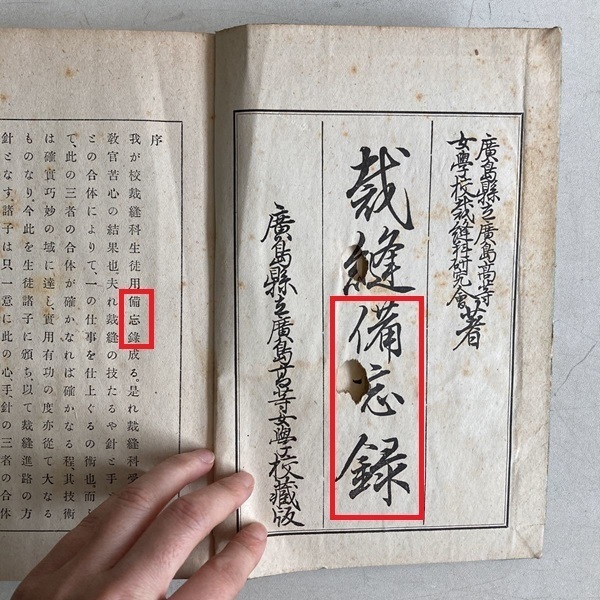 廣島縣立廣島高等
女學校裁縫科研究會著
裁縫備忘錄
廣島縣立廣島高等女學校藏版
序
我が校裁縫科生徒用備忘錄成る。是れ裁縫科受
敎官苦心の結果也。夫れ裁縫の技たるや針と手
との合体によりて、一の仕事を仕上ぐるの術也。而
て、此の三者の合体が確かなれば確かなる程、其技術
は確實巧妙の域に達し、實用有功の度亦從て大なる
ものなり。今此を生徒諸子に頒ち、以て裁縫進路の方
針となす。諸子は只一意に此の心、手、針の三者の合体